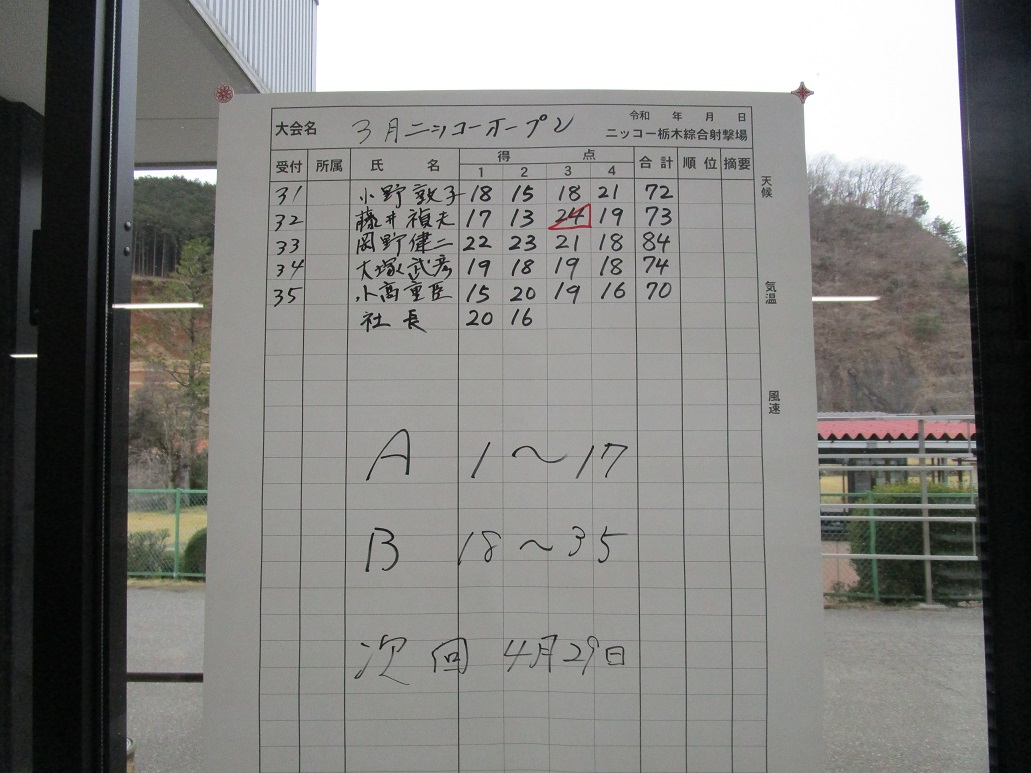 令和 年 月 日
大会名 3月ニッコーオープン ニッコー栃木綜合射撃場
受付 所属 氏名 得点 合計 順位 摘要
1 2 3 4
31 小野敦子 18 15 18 21 72
32 藤井禎夫 17 13 24 19 73
33 岡野健二 22 23 21 18 84
34 大塚武彦 19 18 19 18 74
35 小高重臣 15 20 19 16 70
社長 20 16
A 1〜17
B 18〜35
次回 4月29日
天候
気温
風速